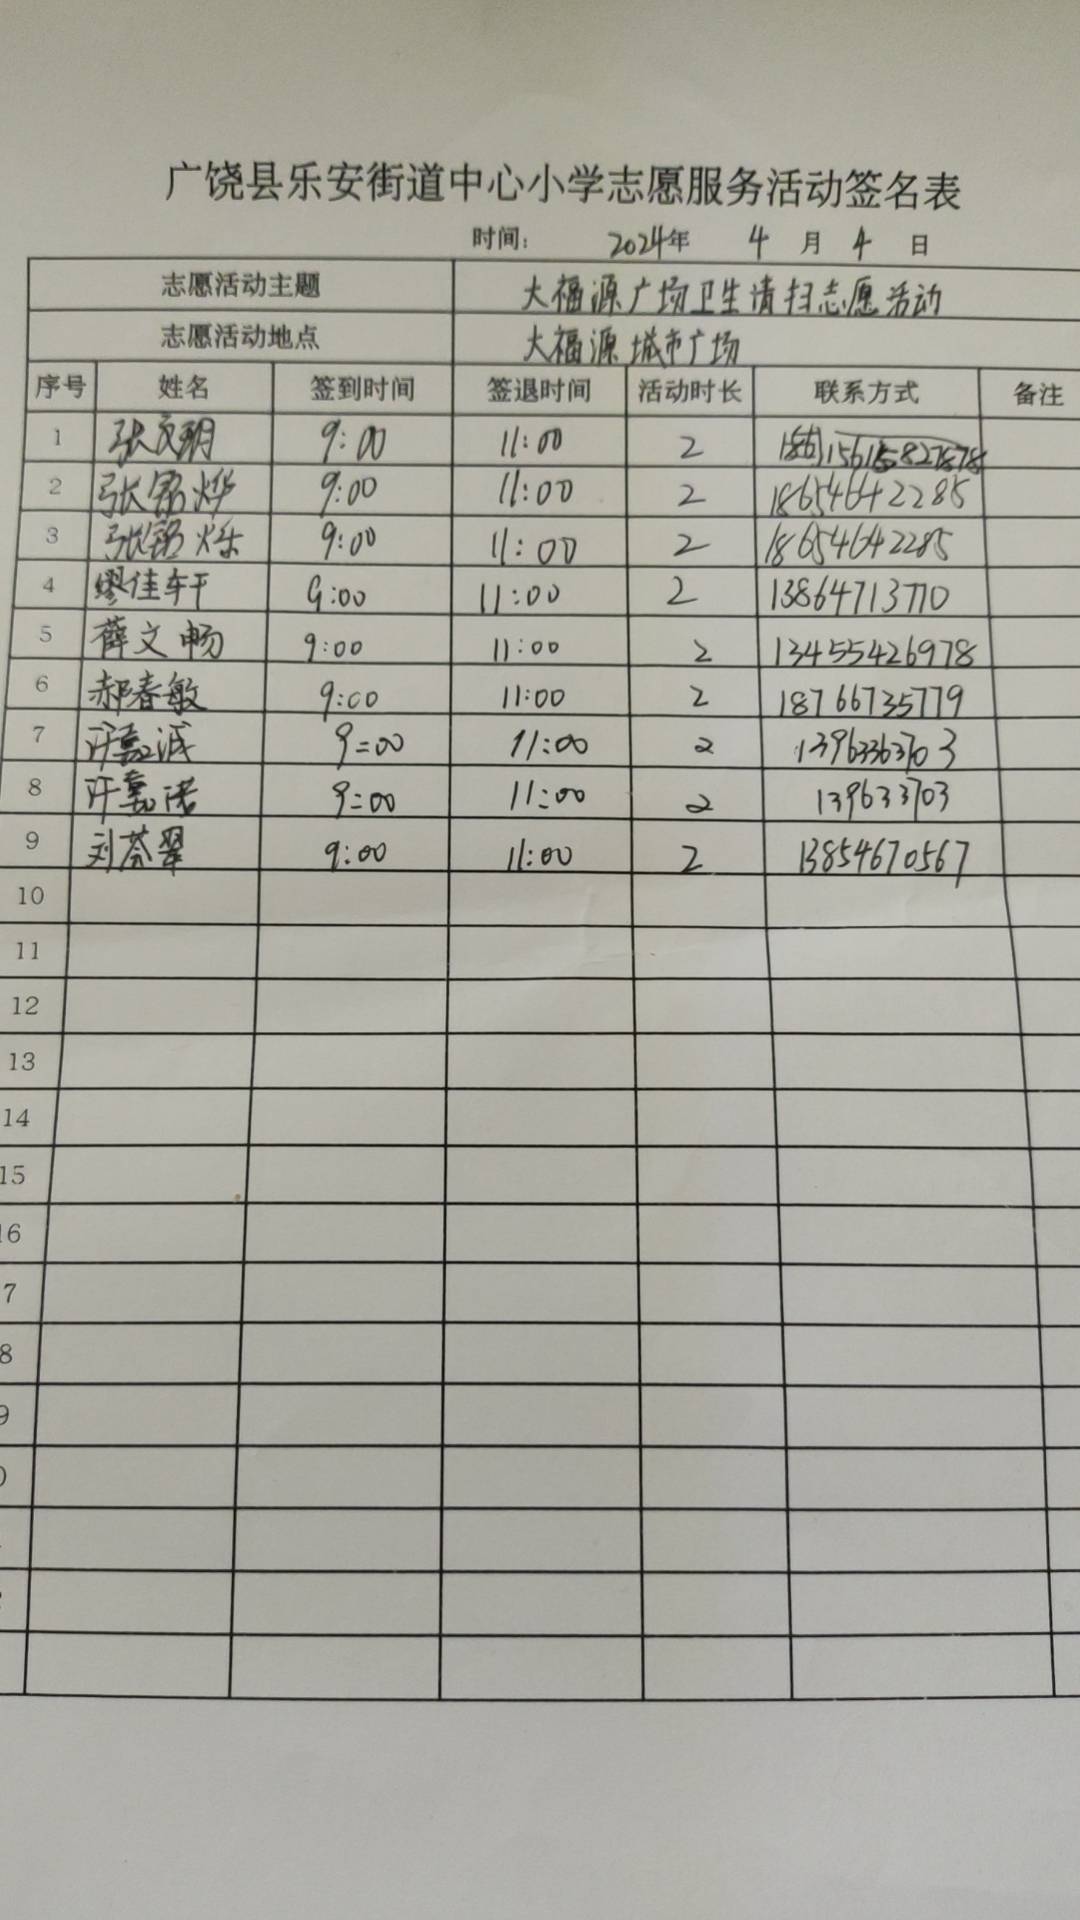 广饶县乐安街道中心小学志愿服务活动签名表
时间： 2024年 4 月 4 日
志愿活动主题 大福源广场卫生请扫志愿活动
志愿活动地点 大福源城市广场
序号 姓名 签到时间 签退时间 活动时长 联系方式 备注
1 张文玥 9:00 11:00 2
2 张铭烨 9:00 11:00 2 18654642285
3 张铭烁 9:00 11:00 2 18654642285
4 缪佳轩 9:00 11:00 2 13864713770
5 薛文畅 9:00 11:00 2 13455426978
6 郝春敏 9:00 11:00 2 18766735779
7 许嘉诚 9:00 11:00 2 13963363703
8 许嘉诺 9:00 11:00 2 139633703
9 刘荟翠 9:00 11:00 2 13854670567
10
11
12
13
14
15
16
7
8
9
0